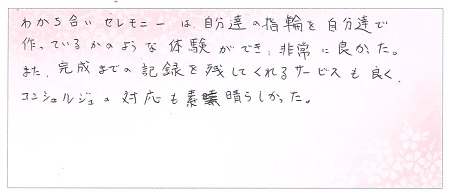 わかち合いセレモニーは、自分達の指輪を自分達で
作っているかのような体験ができ、非常に良かた。
また、完成までの記録を残してくれるサービスも良く、
コンシェルジュの対応も素晴らしかった。